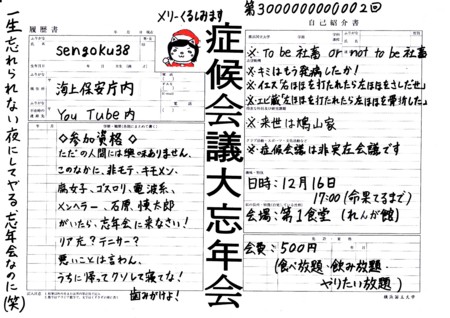 一生忘れられない夜にしてやる、忘年会なのに(笑)
履歴書
メリーくるしみます
sengoku38
海上保安庁内
You Tube内
◇参加資格◇
ただの人間には興味ありません。
このなかに、非モテ、キモメン、
腐女子、ゴスロリ、電波系、
メンヘラー、石原慎太郎
がいたら、忘年会に来なさい!
リア充?テニサー?
悪いことは言わん、
うちに帰ってクソして寝てな!
歯みがけよ!
症候会議大忘年会
第3000000000000002回
自己紹介書
※To be 社畜 or not to be 社畜
※キミはもう発病したか!
※イエス「右ほほを打たれたら左ほほをさしだせ」
※エビ蔵「左ほほを打たれたら右ほほを骨折した」
※来世は鳩山家
※症候会議は非実在会議です
日時:12月16日
17:00(命果てるまで)
会場:第1食堂(れんが館)
会費:500円
(食べ放題・飲み放題・
やりたい放題)
横浜国立大学